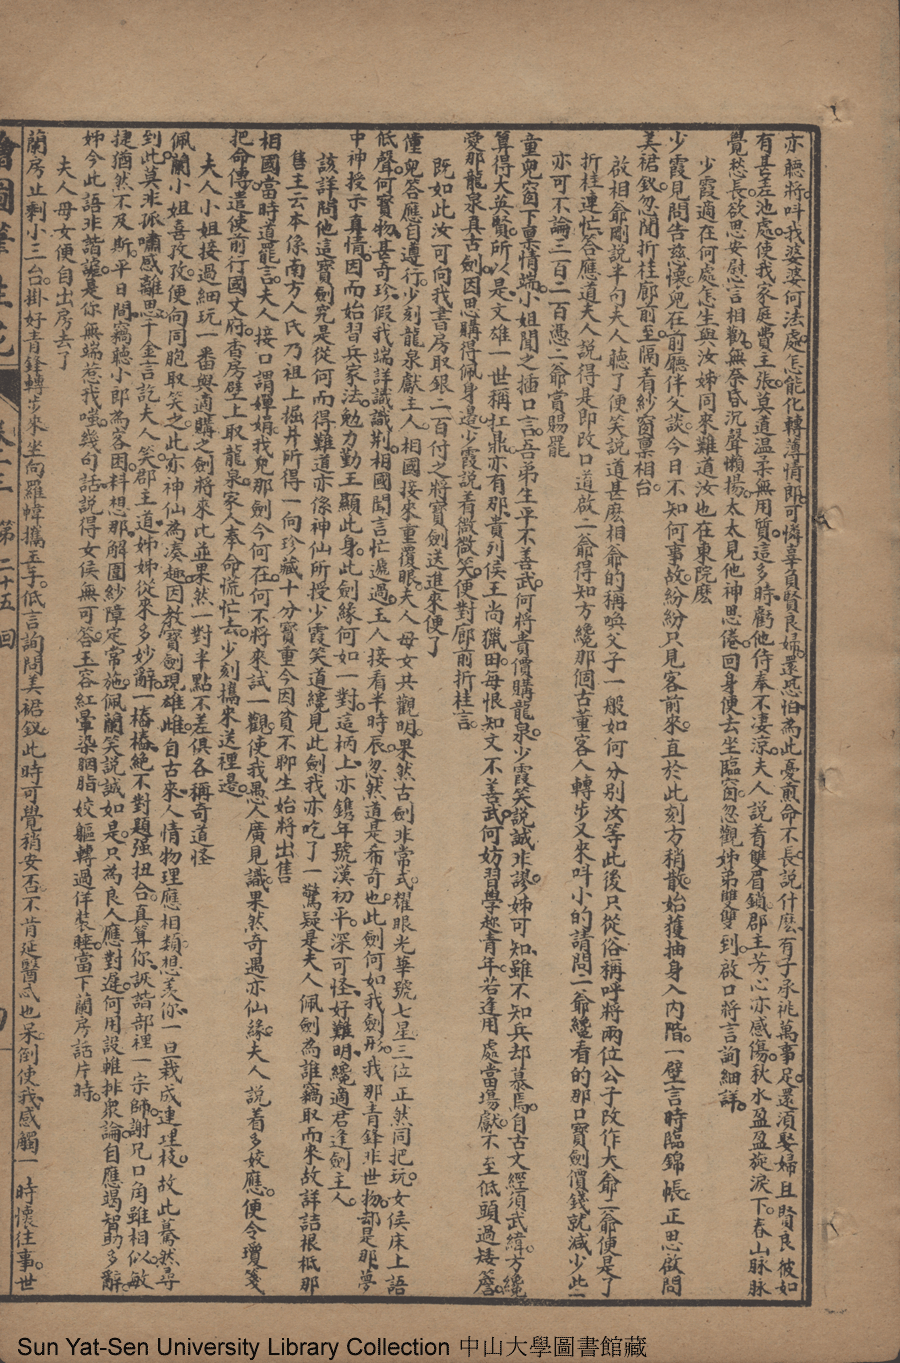 亦聽將。呌我婆婆何法處。怎能化轉薄情郎。可憐辜負賢良婦。還恐怕為此憂煎命不長。説什麽有子承祧萬事足。還須娶婦且賢良。彼如
有甚差池處。使我家庭費主張。莫道温柔無用質。這多時虧他侍奉不凄凉。夫人説着雙眉鎖。郡主芳心亦感傷。秋水盈盈旋淚下。春山脉脉
覺愁長。欲思安慰言相勸。無奈昏沉聲懶揚。太太見他神思倦。回身便去坐臨窗。忽觀姊弟雙雙到。啟口將言詢細詳。
少霞適在何處。怎生與汝姊同來。難道汝也在東院麽
少霞見問告慈懷。兒在前廳伴父談。今日不知何事故。紛紛只見客前來。直於此刻方稍散。始獲抽身入內階。一壁言時臨錦帳。正思啟問
美裙釵。忽聞折桂廊前至。隔着紗窗稟相台。
啟相爺剛説半句夫人聽了便笑説道甚麽相爺的稱喚父子一般如何分别汝等此後只從俗稱呼將兩位公子改作大爺二爺便是了
折桂連忙答應道夫人説得是即改口道啟二爺得知方纔那個古董客人轉步又來呌小的請問二爺纔看的那口寶劍價錢就減少些
亦可不論三百二百憑二爺賞賜罷
童兒窗下稟情端。小姐聞之插口言。吾弟生平不善武。何將貴價購龍泉。少霞笑説誠非謬。姊可知。雖不知兵却慕焉。自古文經須武緯。方纔
算得大英賢。所以是。文雄一世稱扛鼎。亦有那。貴列侯王尚獵田。每恨知文不善武。何妨習學趁青年。若逢用處當場獻。不至低頭過矮簷。
愛那龍泉真古劍。因思購得佩身邊。少霞説着微微笑。便對廊前折桂言。
既如此汝可向我書房取銀二百付之將寶劍送進來便了
僮兒答應自遵行。少刻龍泉獻主人。相國接來重覆眼。夫人母女共觀明。果然古劍非常式。耀眼光華號七星。三位正然同把玩。女侯床上語
低聲。何寶物。甚奇珍。假我端詳識識荆。相國聞言忙遞過。玉人接看半時辰。忽然道是希奇也。此劍何如我劍形。我那青鋒非世物。却是那。夢
中神授示真情。因而始習兵家法。勉力勤王顯此身。此劍緣何如一對。這柄上。亦鐫年號漢初平。深可怪。好難明。纔適君逢劍主人。
該詳問他這寶劍究是從何而得難道亦係神仙所授少霞笑道纔見此劍我亦吃了一驚疑是夫人佩劍為誰竊取而來故詳詰根柢那
售主云本係南方人氏乃祖上掘井所得一向珍藏十分寶重今因貧不聊生始將出售
相國當時道罷言。夫人接口謂嬋娟。我兒那劍今何在。何不將來試一觀。使我愚人廣見識。果然奇遇亦仙緣。夫人説着多姣應。便令瓊箋
把命傳。遣使前行國丈府。香房壁上取龍泉。家人奉命慌忙去。少刻攜來送裡邊。
夫人小姐接過細玩一番與適購之劍將來比並果然一對半點不差俱各稱奇道怪
佩蘭小姐喜孜孜。便向同胞取笑之。此亦神仙為湊趣。因教寶劍現雄雌。自古來。人情物理應相類。想羨你。一旦栽成連理枝。故此驀然尋
到此。莫非孤嘯感離思。千金言訖夫人笑。郡主道。姊姊從來多妙辭。一樁樁。絶不對題强扭合。真算你。詼諧部裡一宗師。謝兄口角雖相似。敏
捷猶然不及斯。平日間。竊聽小郎為客困。料想那。解圍紗障定常施。佩蘭笑説誠如是。只為良人應對遲。何用設帷排衆論。自應竭智助多辭。
姊今此語非諧謔。是你無端惹我嗤。幾句話。説得女侯無可答。玉容紅暈染胭脂。姣軀轉過佯裝睡。當下蘭房話片時。
夫人母女便自出房去了
蘭房止剩小三台。掛好青鋒轉步來。坐向羅幃攜玉手。低言詢問美裙釵。此時可覺稍安否。不肯延醫忒也呆。倒使我。感觸一時懷往事。世
繪圖筆生花 卷十三 第二十五回
Sun Yat-Sen University Library Collection 中山大學圖書館藏